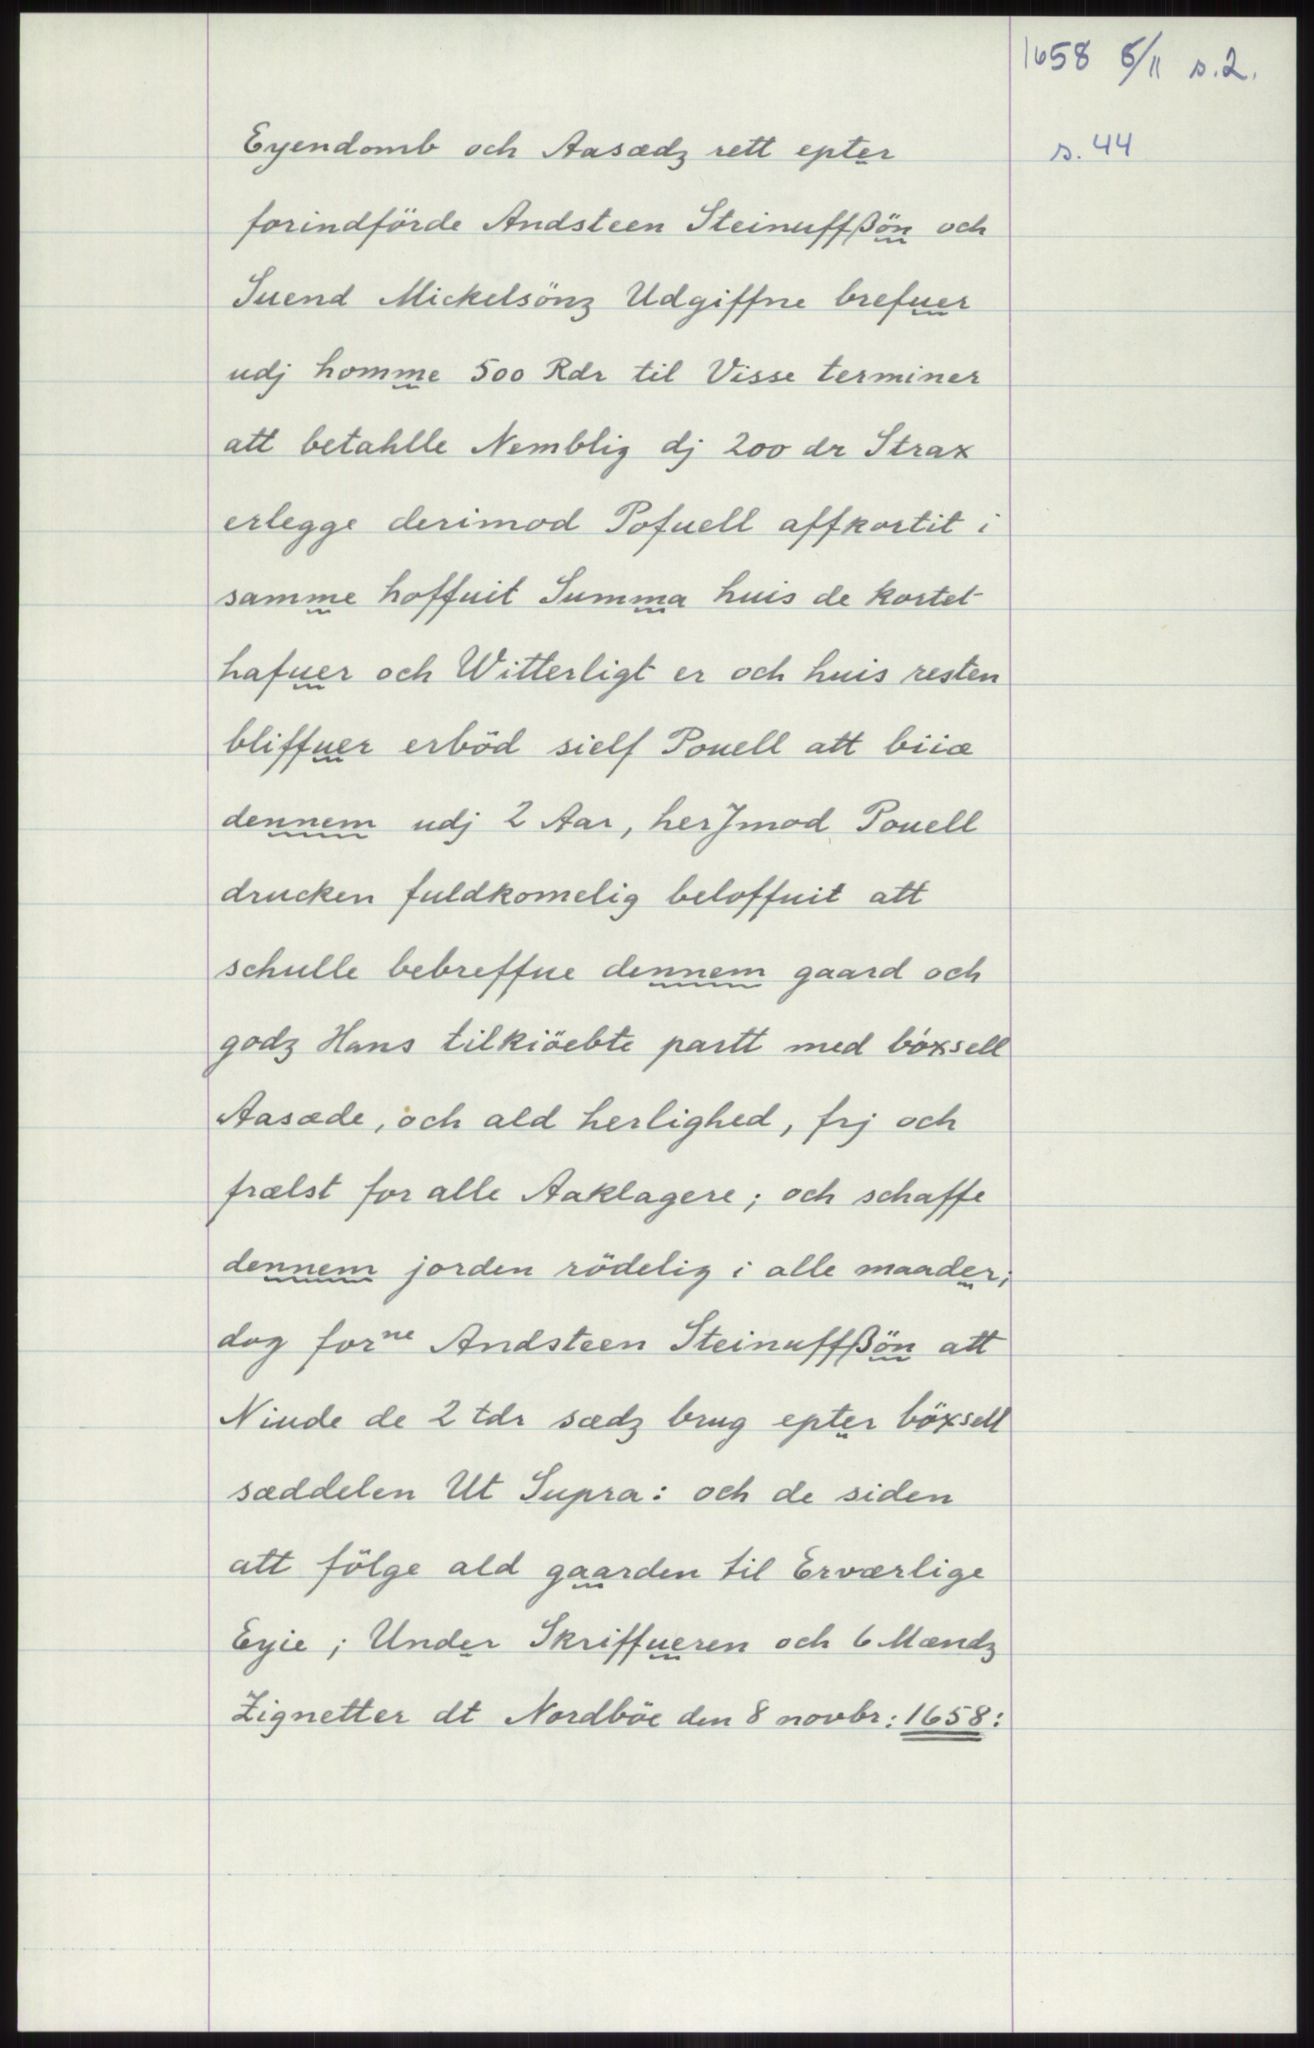 1658 8/11 s.2.
s. 44
Eyendomb och Aasædz rett epter
forindförde Andsteen Steinuffßön och
Suend Mickelsönz Udgiffne brefuer
udj homme 500 Rdr til Visse terminer
att betahlle Nemblig dj 200 dr Strax
erlegge derimod Pofuell affkortit i
samme hoffuit Summa huis de kostet
hafuer och Witterligt er och huis resten
bliffuer erböd sielf Pouell att biiæ
dennem udj 2 Aar, herJmod Pouell
drucken fuldkomelig beloffuit att
schulle bebreffue dennem gaard och
godz Hans tilkiöebte partt med böxsell
Aasæde, och ald herlighed, frj och
frælst for alle Aaklagere; och schaffe
dennem jorden rödelig i alle maader;
dog forne Andsteen Steinuffßön att
Niude de 2 tdr sædz brug epter böxsell
sæddelen Ut Supra: och de siden
att fölge ald gaarden til Erværlige
Eyie; Under Skriffueren och 6 Mændz
Zignetter dt Nordböe den 8 novbr: 1658: